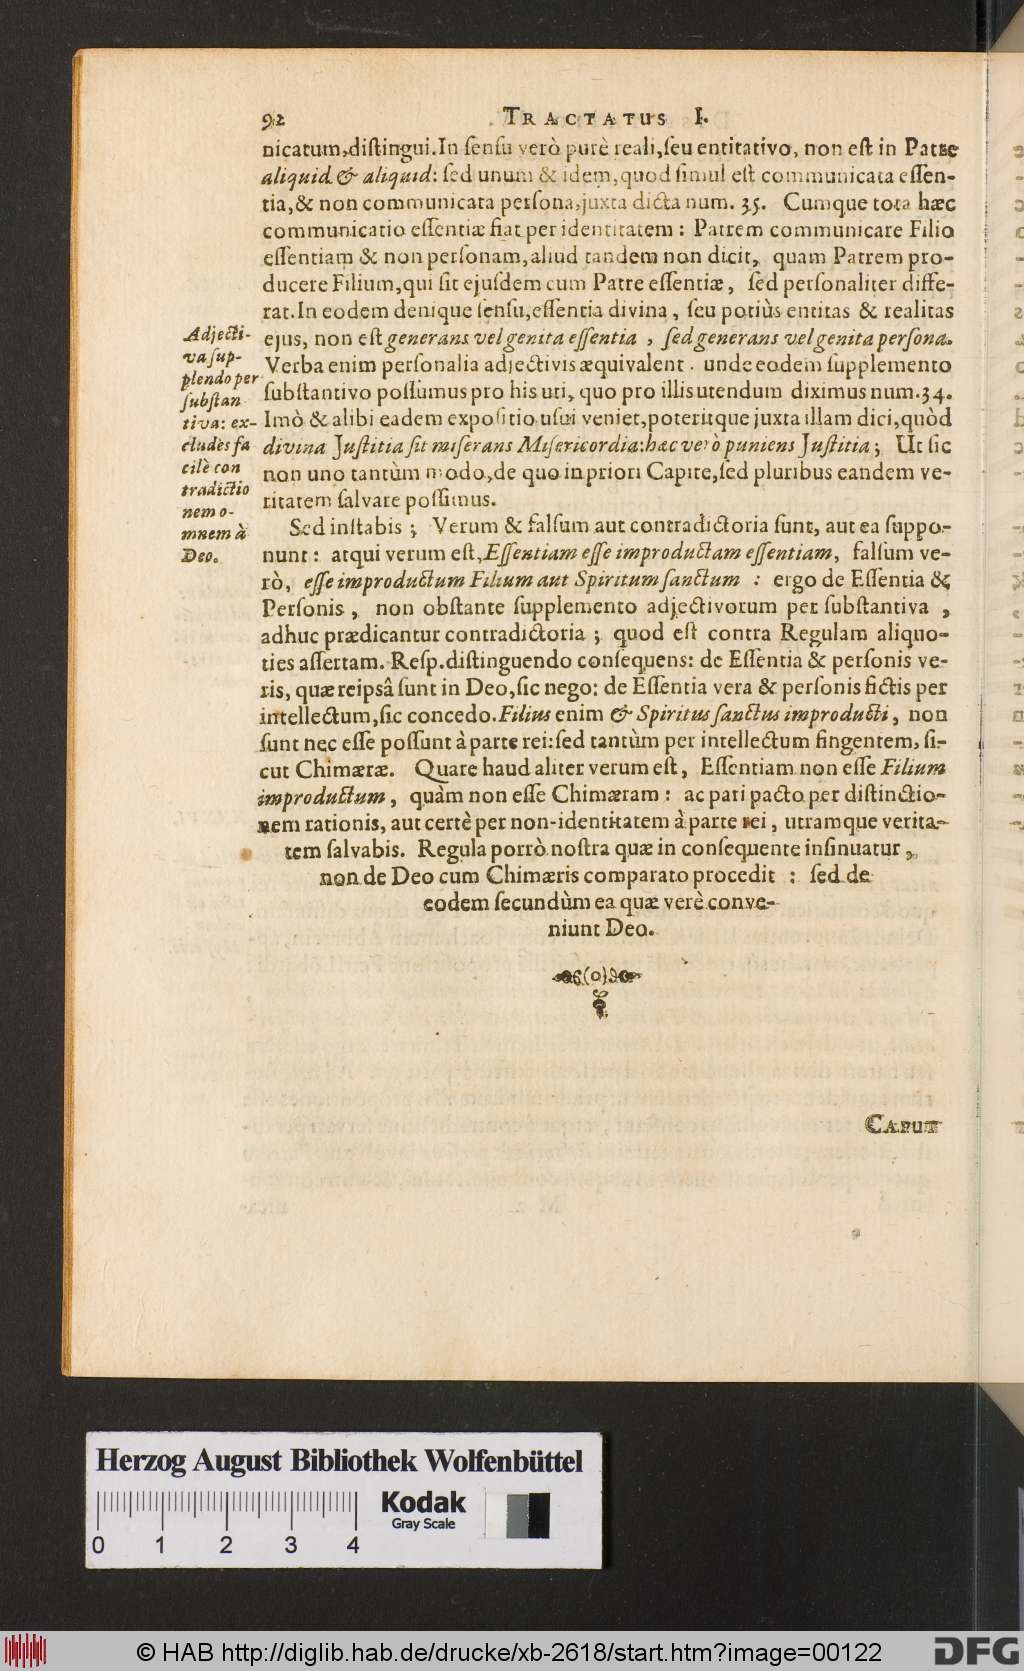 92 TRACTATUS I.
nicatum, distingui. In sensu verò purè reali, seu entitativo, non est in Patre
aliquid & aliquid: sed unum & idem, quod simul est communicata essen-
tia, & non communicata persona, juxta dicta num. 35. Cumque tota hæc
communicatio essentiæ fiat per identitatem: Patrem communicare Filio
essentiam & non personam, aliud tandem non dicit, quam Patrem pro-
ducere Filium, qui sit ejusdem cum Patre essentiæ, sed personaliter diffe-
rat. In eodem denique sensu, essentia divina, seu potiùs entitas & realitas
ejus, non est generans vel genita essentia, sed generans vel genita persona.
Verba enim personalia adjectivis æquivalent. unde eodem supplemento
substantivo possumus pro his uti, quo pro illis utendum diximus num. 34.
Imò & alibi eadem expositio usui veniet, poteritque juxta illam dici, quòd
divina Justitia sit miserans Misericordia: hæc verò puniens Justitia; Ut sic
non uno tantùm modo, de quo in priori Capite, sed pluribus eandem ve-
ritatem salvare possimus.
Adjecti-
va sup-
plendo per
substan
tiva: ex-
cludes fa
cilè con
tradictio
nem o-
mnem à
Deo.
Sed instabis; Verum & falsum aut contradictoria sunt, aut ea suppo-
nunt: atqui verum est, Essentiam esse improductam essentiam, falsum ve-
rò, esse improductum Filium aut Spiritum sanctum: ergo de Essentia &
Personis, non obstante supplemento adjectivorum per substantiva,
adhuc prædicantur contradictoria; quod est contra Regulam aliquo-
ties assertam. Resp. distinguendo consequens: de Essentia & personis ve-
ris, quæ reipsâ sunt in Deo, sic nego: de Essentia vera & personis fictis per
intellectum, sic concedo. Filius enim & Spiritus sanctus improducti, non
sunt nec esse possunt à parte rei: sed tantùm per intellectum fingentem, si-
cut Chimæræ. Quare haud aliter verum est, Essentiam non esse Filium
improductum, quàm non esse Chimæram: ac pari pacto per distinctio-
nem rationis, aut certè per non-identitatem à parte rei, utramque verita-
tem salvabis. Regula porrò nostra quæ in consequente insinuatur,
non de Deo cum Chimæris comparato procedit: sed de
eodem secundùm ea quæ verè conve-
niunt Deo.
CAPUT
Herzog August Bibliothek Wolfenbüttel
Kodak
Gray Scale
0 1 2 3 4
© HAB http://diglib.hab.de/drucke/xb-2618/start.htm?image=00122 DFG